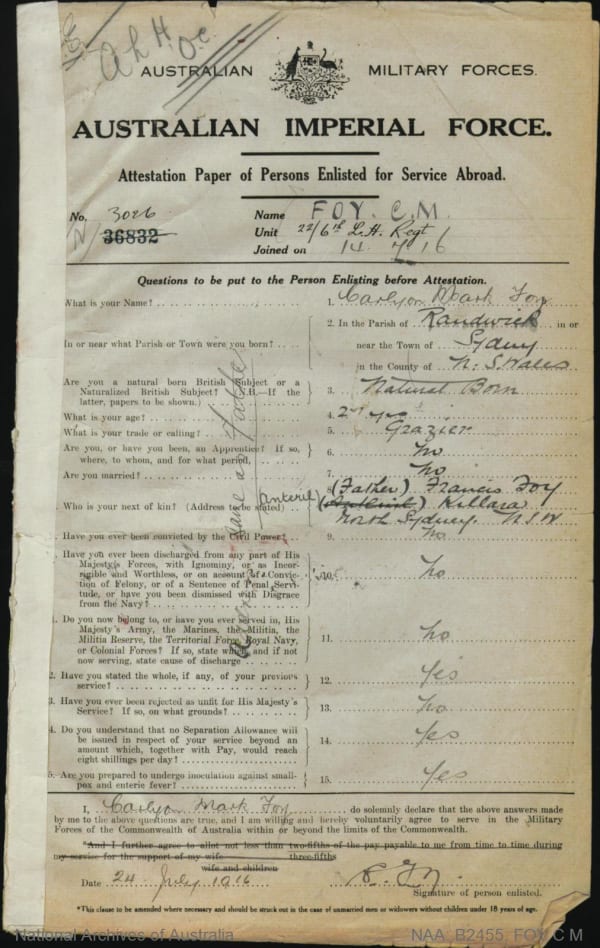 A L H
O.C
AUSTRALIAN MILITARY FORCES.
AUSTRALIAN IMPERIAL FORCE.
Attestation Paper of Persons Enlisted for Service Abroad.
No. 3026 Name FOY. C.M.
N 36832 Unit 22/6th L.H. Regt
Joined on 14. 7. 16
Questions to be put to the Person Enlisting before Attestation.
What is your Name? 1. Carlyon Mark Foy
In or near what Parish or Town were you born? 2. In the Parish of Randwick in or
near the town of Sydney
in the County of N. S. Wales
Are you a natural born British Subject or a
Naturalized British Subject? N.B.—If the
latter, papers to be shown.) 3. Natural Born
What is your age? 4.
What is your trade or calling? 5. Grazier
Are you, or have you been, an Apprentice? If so,
where, to whom, and for what period, 6. No
Are you married? 7. No
(Father) Francis Foy
Who is your next of kin? (Address to be stated) Killara
North Sydney. N.S.W
Have you ever been convicted by the Civil Power? 9. No
Have you ever been discharged from any part of His
Majesty's Forces, with Ignominy, or as Incor-
rigible and Worthless, or on account of a Convic-
tion of Felony, or of a Sentence of Penal Servi-
tude, or have you been dismissed with Disgrace
from the Navy? No
Do you now belong to, or have you ever served in, His
Majesty's Army, the Marines, the Militia, the
Militia Reserve, the Territorial Force, Royal Navy,
or Colonial Forces? If so, state which, and if not
now serving, state cause of discharge 11. No
2. Have you stated the whole, if any, of your previous
service? 12. Yes
3. Have you ever been rejected as unfit for His Majesty's
Service? If so, on what grounds? 13. No
4. Do you understand that no Separation Allowance will
be issued in respect of your service beyond an
amount which, together with Pay, would reach
eight shillings per day? 14. Yes
5. Are you prepared to undergo inoculation against small-
pox and enteric fever? 15. Yes
I, Carlyon Mark Foy do solemnly declare that the above answers made
by me to the above questions are true, and I am willing and hereby voluntarily agree to serve in the Military
Forces of the Commonwealth of Australia within or beyond the limits of the Commonwealth.
*And I further agree to allot not less than two-fifths of the pay payable to me from time to time during
my service for the support of my wife three-fifths
wife and children
Date 24 July 1916 C. Foy
Signature of person enlisted.
*This clause to be amended where necessary and should be struck out in the case of unmarried men or widowers without children under 18 years of age.
National Archives of Australia NAA_B2455_FOY C M